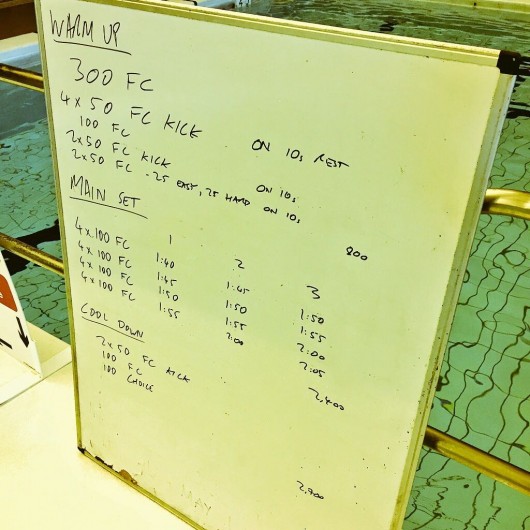 WARM UP
300 FC
4 x 50 FC KICK ON 10s REST
100 FC
2x50 FC KICK ON 10s
2x50 FC - 25 EASY, 25 HARD ON 10s
800
MAIN SET
1 2 3
4x100 FC 1:40 1:45 1:50
4x100 FC 1:45 1:50 1:55
4x100 FC 1:50 1:55 2:00
4x100 FC 1:55 2:00 2:05
2,400
COOL DOWN
2x50 FC KICK
100 FC
100 CHOICE
2,700